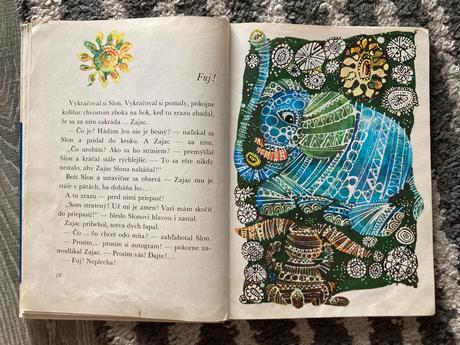 Fuj!
Vykračoval si Slon. Vykračoval si pomaly, pokojne
kolíšuc chvostom zboka na bok, keď tu zrazu zbadal,
že sa za ním zakráda... Zajac.
— Čo je? Hádam len nie je besný? — naľakal sa
Slon a pridal do kroku. A Zajac — za ním.
„Čo urobím? Ako sa ho strasiem? — premýšľal
Slon a kráčal stále rýchlejšie. — To sa ešte nikdy
nestalo, aby Zajac Slona naháňal!"
Beží Slon a ustavične sa obzerá — Zajac mu je
stále v pätách, ba doháňa ho...
A tu zrazu — pred nimi priepasť!
„Som stratený! Už mi je amen! Vari mám skočiť
do priepasti!" — blesklo Slonovi hlavou i zastal.
Zajac pribehol, sotva dych lapal.
— Čo... čo chceš odo mňa? — zabľabotal Slon.
— Prosím... prosím si autogram! — pokorne za-
modlikal Zajac. — Prosím vás! Dajte!...
— Fuj! Neplecha!
10